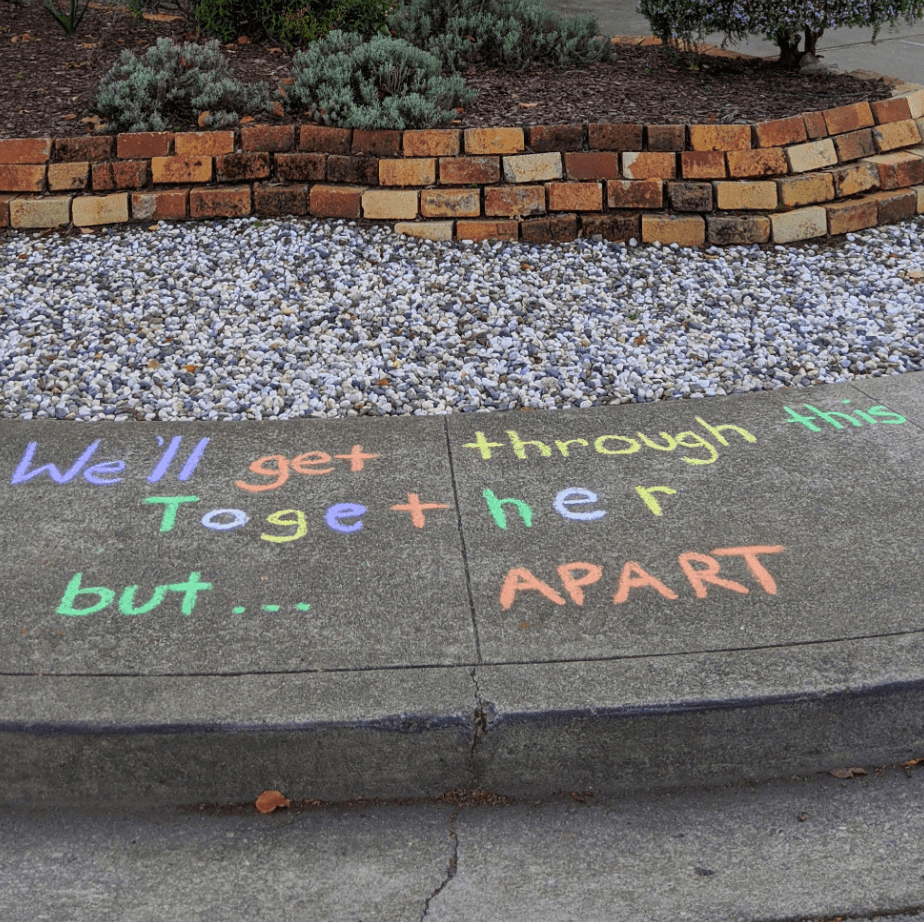 We'll get through this
Together
but... APART